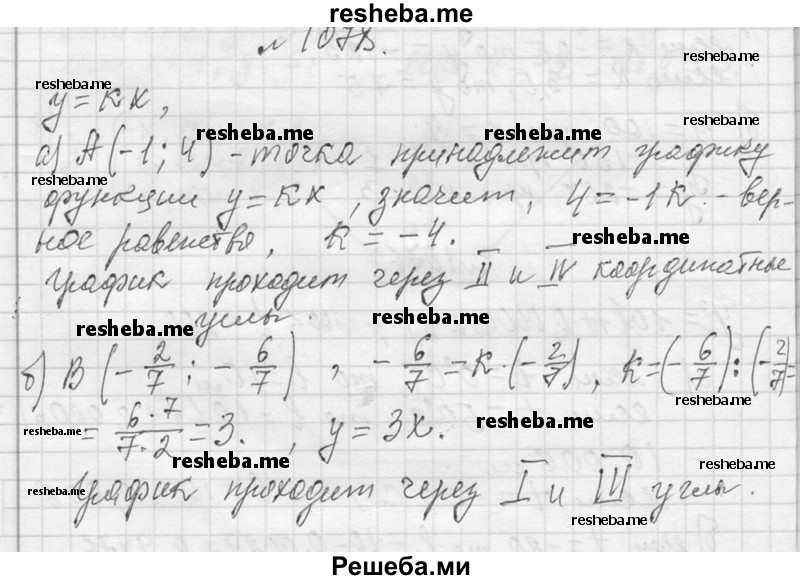 resheba.me
№ 1078.
resheba.me resheba.me
y = kx,
resheba.me
а) A(-1; 4) - точка принадлежит графику
resheba.me resheba.me
resheba.me
функции y = kx, значит, 4 = -1k - вер-
ное равенство, k = -4.
resheba.me
График проходит через II и IV координатные
углы.
resheba.me resheba.me
б) B (-2/7; -6/7), -6/7 = k·(-2/7), k = (-6/7):(-2/7) =
resheba.me
= 6·7/7·2 = 3. , y = 3x.
resheba.me resheba.me
resheba.me resheba.me
График проходит через I и III углы.
resheba.me
resheba.me
Решеба.ми